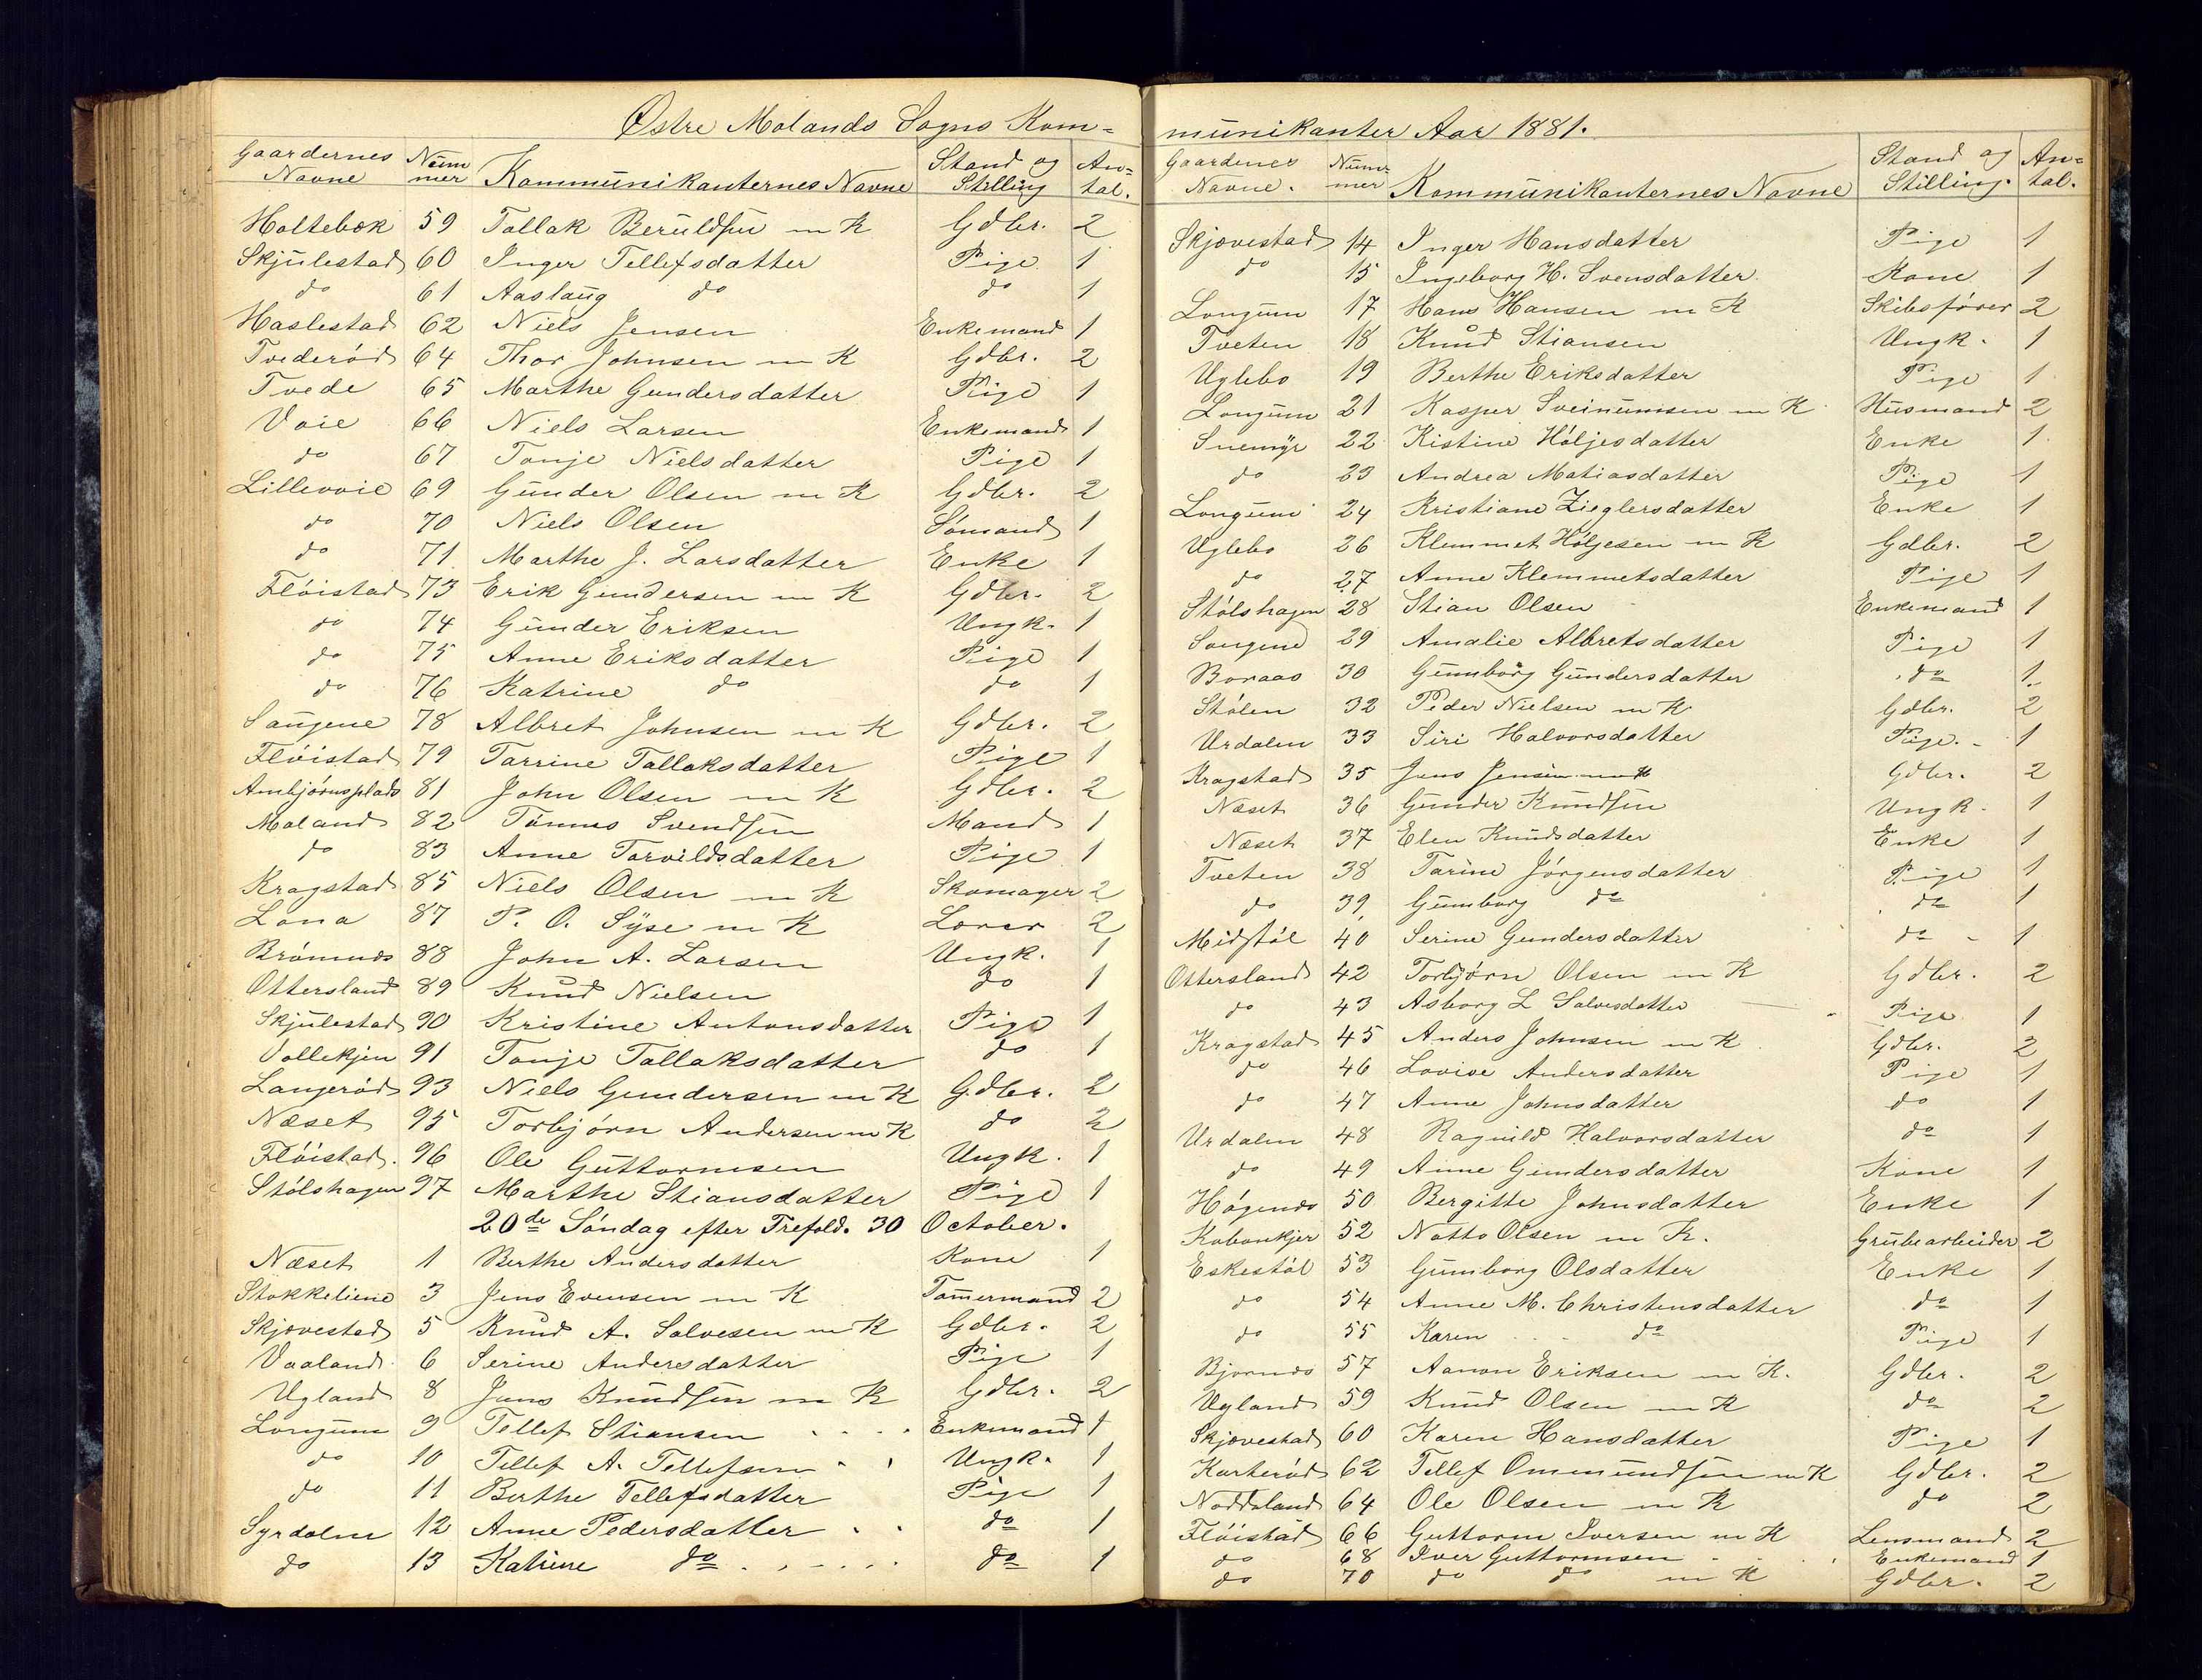 Østre Molands Sogns Kom=
Gaardernes Navne Num mer Kommunikanternes Navne Stand og Stilling An= tal.
Holtebæk 59 Tollak Beruldsen m K Gdbr. 2
Skjulestad 60 Inger Tellefsdatter Pige 1
do 61 Aaslaug do do 1
Haslestad 62 Niels Jensen Enkemand 1
Tvederød 64 Thor Johnsen m K Gdbr. 2
Tvede 65 Marthe Gundersdatter Pige 1
Vaie 66 Niels Larsen Enkemand 1
do 67 Tonje Nielsdatter Pige 1
Lillevaie 69 Gunder Olsen m K Gdbr. 2
do 70 Niels Olsen Sømand 1
do 71 Marthe J. Larsdatter Enke 1
Fløistad 73 Erik Gundersen m K Gdbr. 2
do 74 Gunder Eriksen Ungk. 1
do 75 Anne Eriksdatter Pige 1
do 76 Katrine do do 1
Saugene 78 Albret Johnsen m K Gdbr. 2
Fløistad 79 Tarrine Tallaksdatter Pige 1
Ambjørnsplads 81 John Olsen m K Gdbr. 2
Moland 82 Tønnes Svendsen Mand 1
do 83 Anne Torvildsdatter Pige 1
Kragstad 85 Niels Olsen m K Skomager 2
Lona 87 P. O. Syse m K Lærer 2
Brømnes 88 John A. Larsen Ungk. 1
Ottersland 89 Knud Nielsen do 1
Skjulestad 90 Kristine Antonsdatter Pige 1
Vollekjen 91 Tonje Tallaksdatter do 1
Langerød 93 Niels Gundersen m K Gdbr. 2
Næset 95 Torbjørn Andersen m K do 2
Fløistad. 96 Ole Guttormsen Ungk. 1
Stølshagen 97 Marthe Stiansdatter Pige 1
20de Søndag efter Trefold. 30 October.
Næset 1 Berthe Andersdatter Kone 1
Stokkeliene 3 Jens Evensen m K Tømermand 2
Skjævestad 5 Knud A. Salvesen m K Gdbr. 2
Vaaland 6 Serine Andersdatter Pige 1
Ugland 8 Jens Knudsen m K Gdbr. 2
Longum 9 Tellef Stiansen Enkemand 1
do 10 Tellef A. Tellefsen Ungk. 1
do 11 Berthe Tellefsdatter Pige 1
Syrdalen 12 Anne Pedersdatter do 1
do 13 Katrine do do 1
munikanter Aar 1881.
Gaardenes Navne. Num= mer Kommunikanternes Navne Stand og Stilling. An= tal.
Skjævestad 14 Inger Hansdatter Pige 1
do 15 Ingeborg H. Svensdatter Kone 1
Longum 17 Hans Hansen m K Skibsfører 2
Tveten 18 Knud Stiansen Ungk. 1
Uglebo 19 Berthe Eriksdatter Pige 1
Longum 21 Kasper Sveinumsen m K Husmand 2
Snemyr 22 Kistine Høljesdatter Enke 1
do 23 Andrea Matiasdatter Pige 1
Longum 24 Kristiane Zieglersdatter Enke 1
Uglebo 26 Klemmet Høljesen m K Gdbr. 2
do 27 Anne Klemmetsdatter Pige 1
Stølshagen 28 Stian Olsen Enkemand 1
Songene 29 Amalie Albretsdatter Pige 1
Boraas 30 Gunborg Gundersdatter do 1
Stølen 32 Peder Nielsen m K Gdbr. 2
Urdalen 33 Siri Halvorsdatter Pige. 1
Kragstad 35 Jens Jensen m K Gdbr. 2
Næset 36 Gunder Knudsen Ungk. 1
Næset 37 Elen Knudsdatter Enke 1
Tveten 38 Tarine Jørgensdatter Pige 1
do 39 Gunborg do do 1
Midstøl 40 Serine Gundersdatter do 1
Ottersland 42 Torbjørn Olsen m K Gdbr. 2
do 43 Asborg L Salvesdatter Pige 1
Kragstad 45 Anders Johnsen m K Gdbr. 2
do 46 Lovise Andersdatter Pige 1
do 47 Anne Johnsdatter do 1
Urdalen 48 Ragnild Halvorsdatter do 1
do 49 Anne Gundersdatter Kone 1
Høgenes 50 Bergitte Johnsdatter Enke 1
52 Notto Olsen m K. Grubearbeider 2
Eskestøl 53 Gunborg Olsdatter Enke 1
do 54 Anne M. Christensdatter do 1
do 55 Karen do Pige 1
Bjornes 57 Aanon Eriksen m K. Gdbr. 2
Ugland 59 Knud Olsen m K do 2
Skjævestad 60 Karen Hansdatter Pige 1
Karterød 62 Tellef Ommundsen m K Gdbr. 2
Noddeland 64 Ole Olsen m K do 2
Fløistad 66 Guttorm Iversen m K Lensmand 2
do 68 Iver Guttormsen Enkemand 1
do 70 do do m K Gdbr. 2